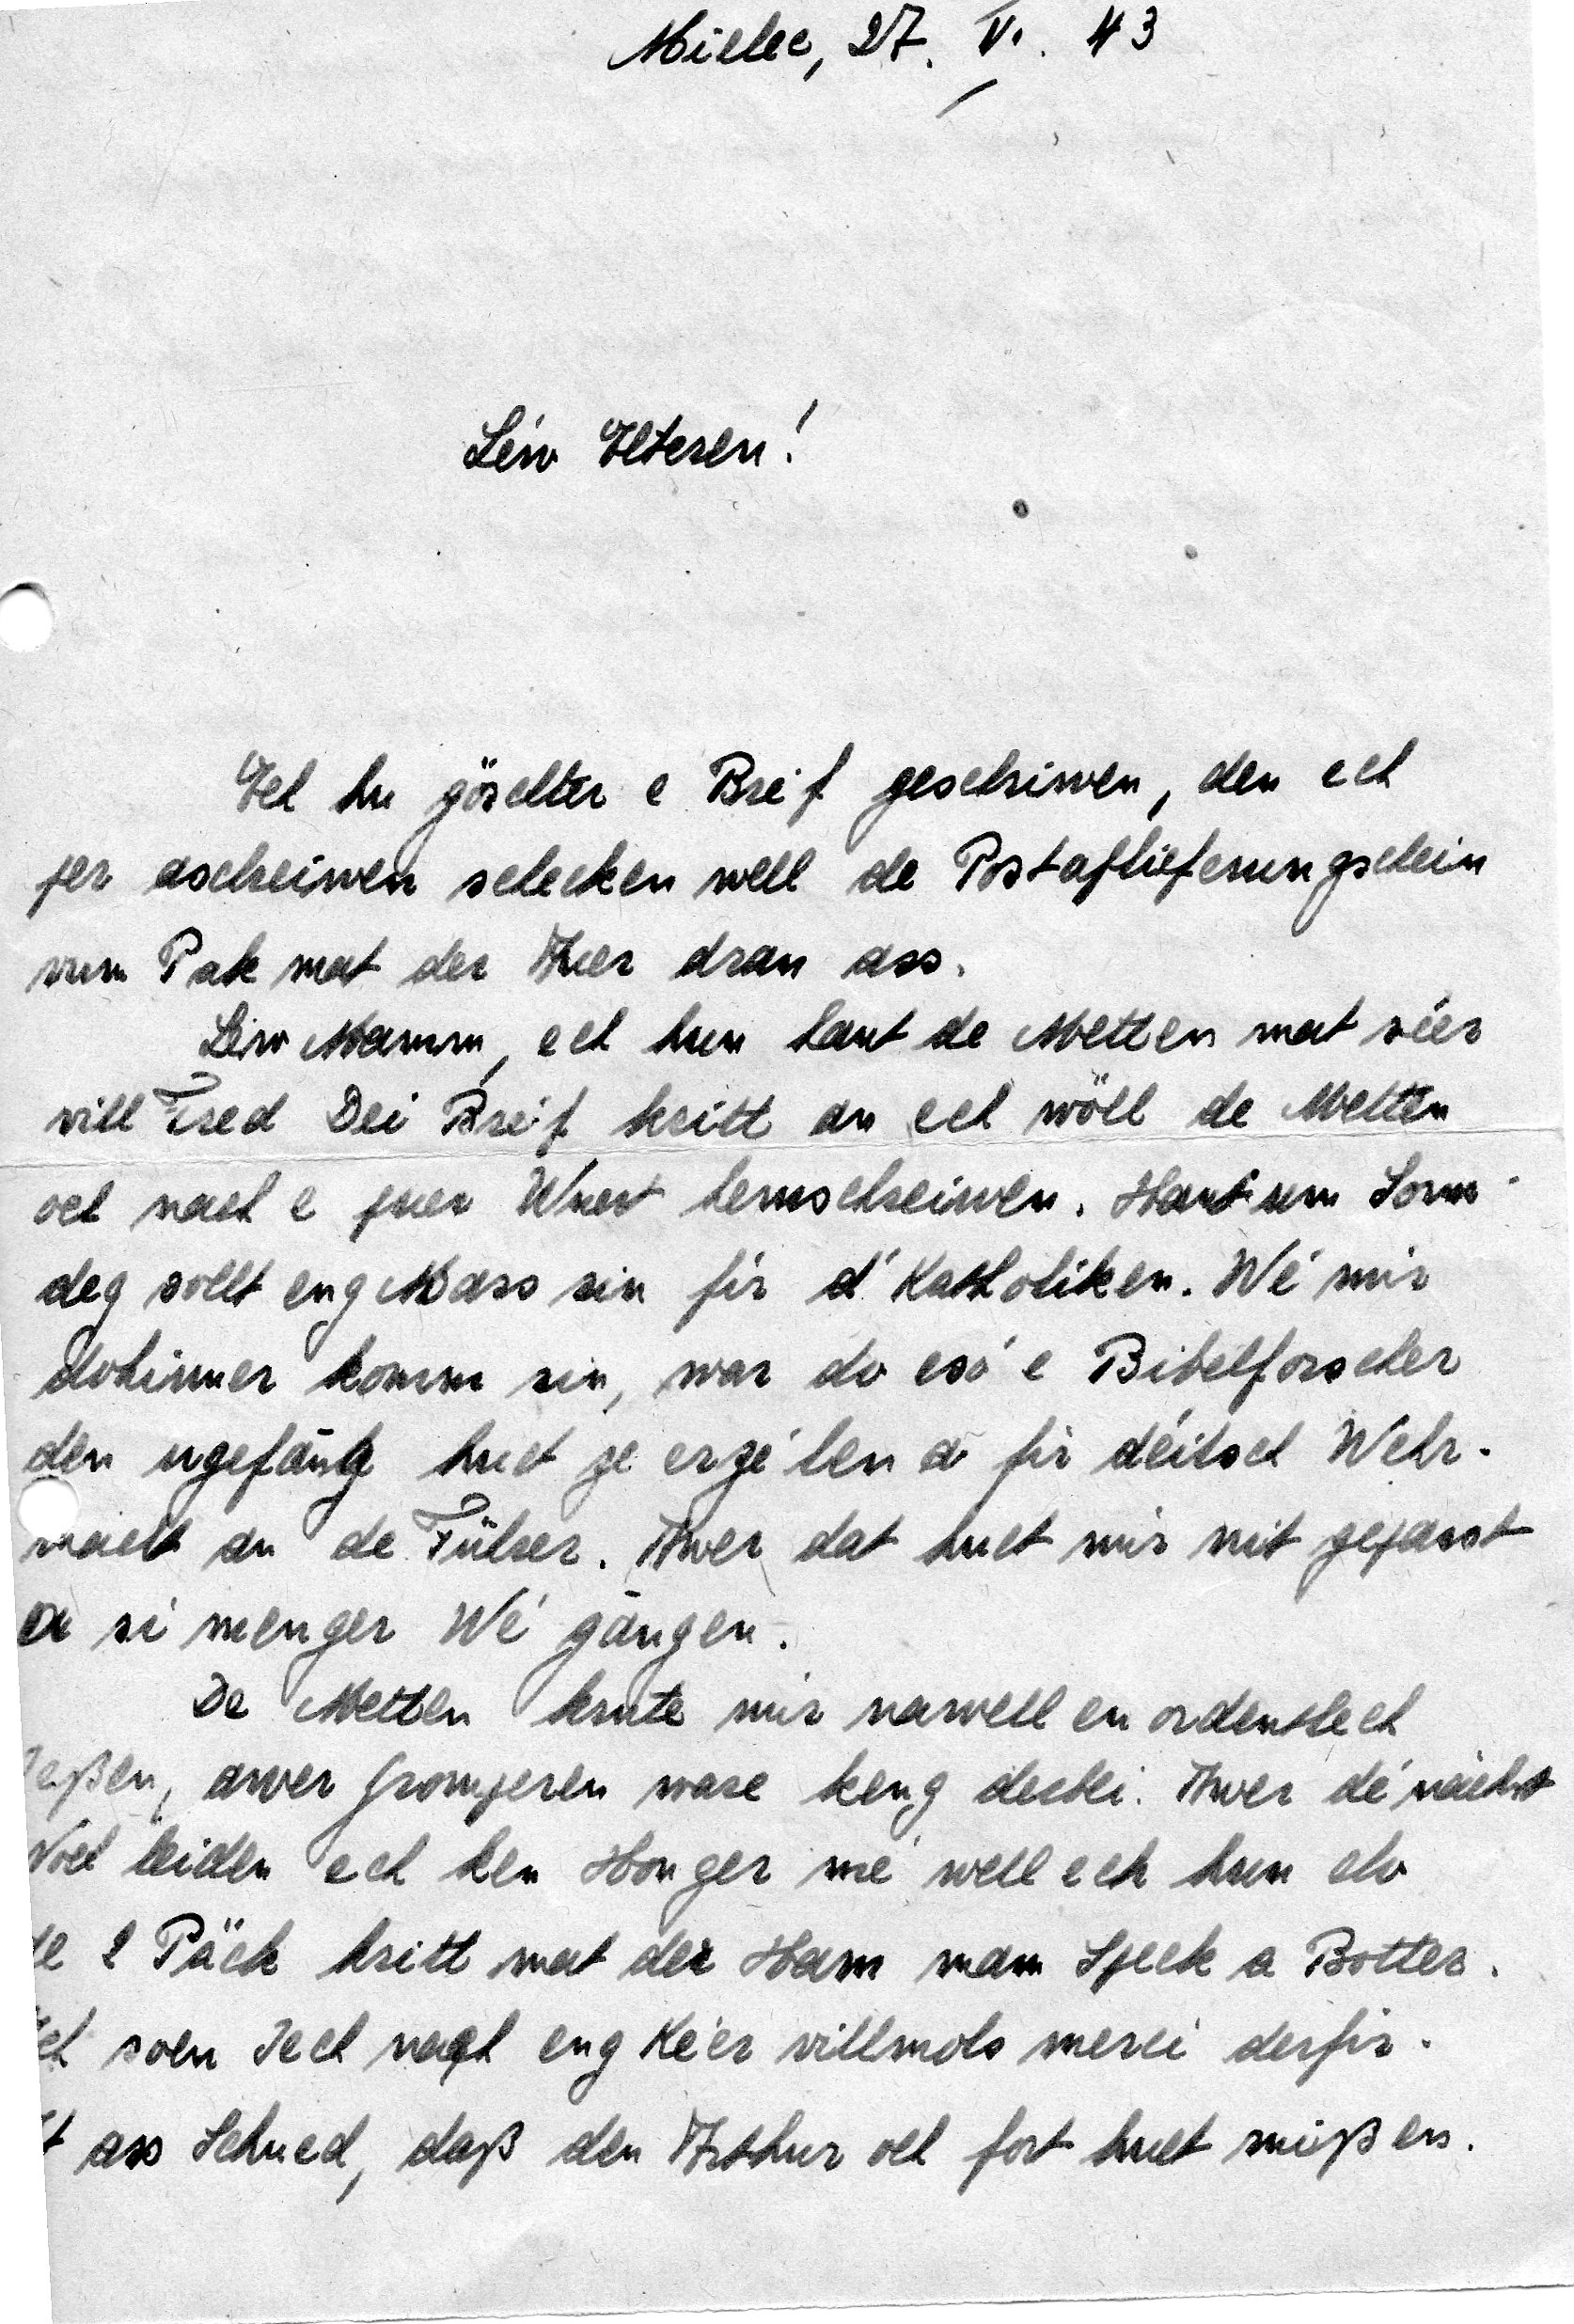 Mielec, 27. V. 43
Léiw Elteren!
Ech hu göschter e Bréif geschriwen, den ech
per aschreiwen schecken well de Postaflieferungschein
vum Pak mat der Auer dran ass.
Léiw Mamm, ech hun haut de Metten mat véier
vill Fred Dei Bréif kritt an ech wöll de Metten
och nach e puer Wuert hemschreiwen. Haut um Sonn-
deg sollt eng Mass sin fir d'Katholiken. Wé mir
dohinner komm sin, war do esó e Bibelforscher
den ugefäng huet ze erzé len a fir déitsch Wehr-
macht an de Führer. Awer dat huet mir nit gepasst
ex si menger Wé gängen.
De Metten krute mir nawell en ordentlech
Ießen, awer Gromperen ware keng derbei. Awer dé nächst
Woch leiden ech ken Honger mé well ech hun do
de 2 Päck kritt mat der Ham mam Speck a Botter.
Ech soen Iech nach eng Kéier villmols merci derfir.
Et ass Schued, daß den Arthur och fort huet mißen.